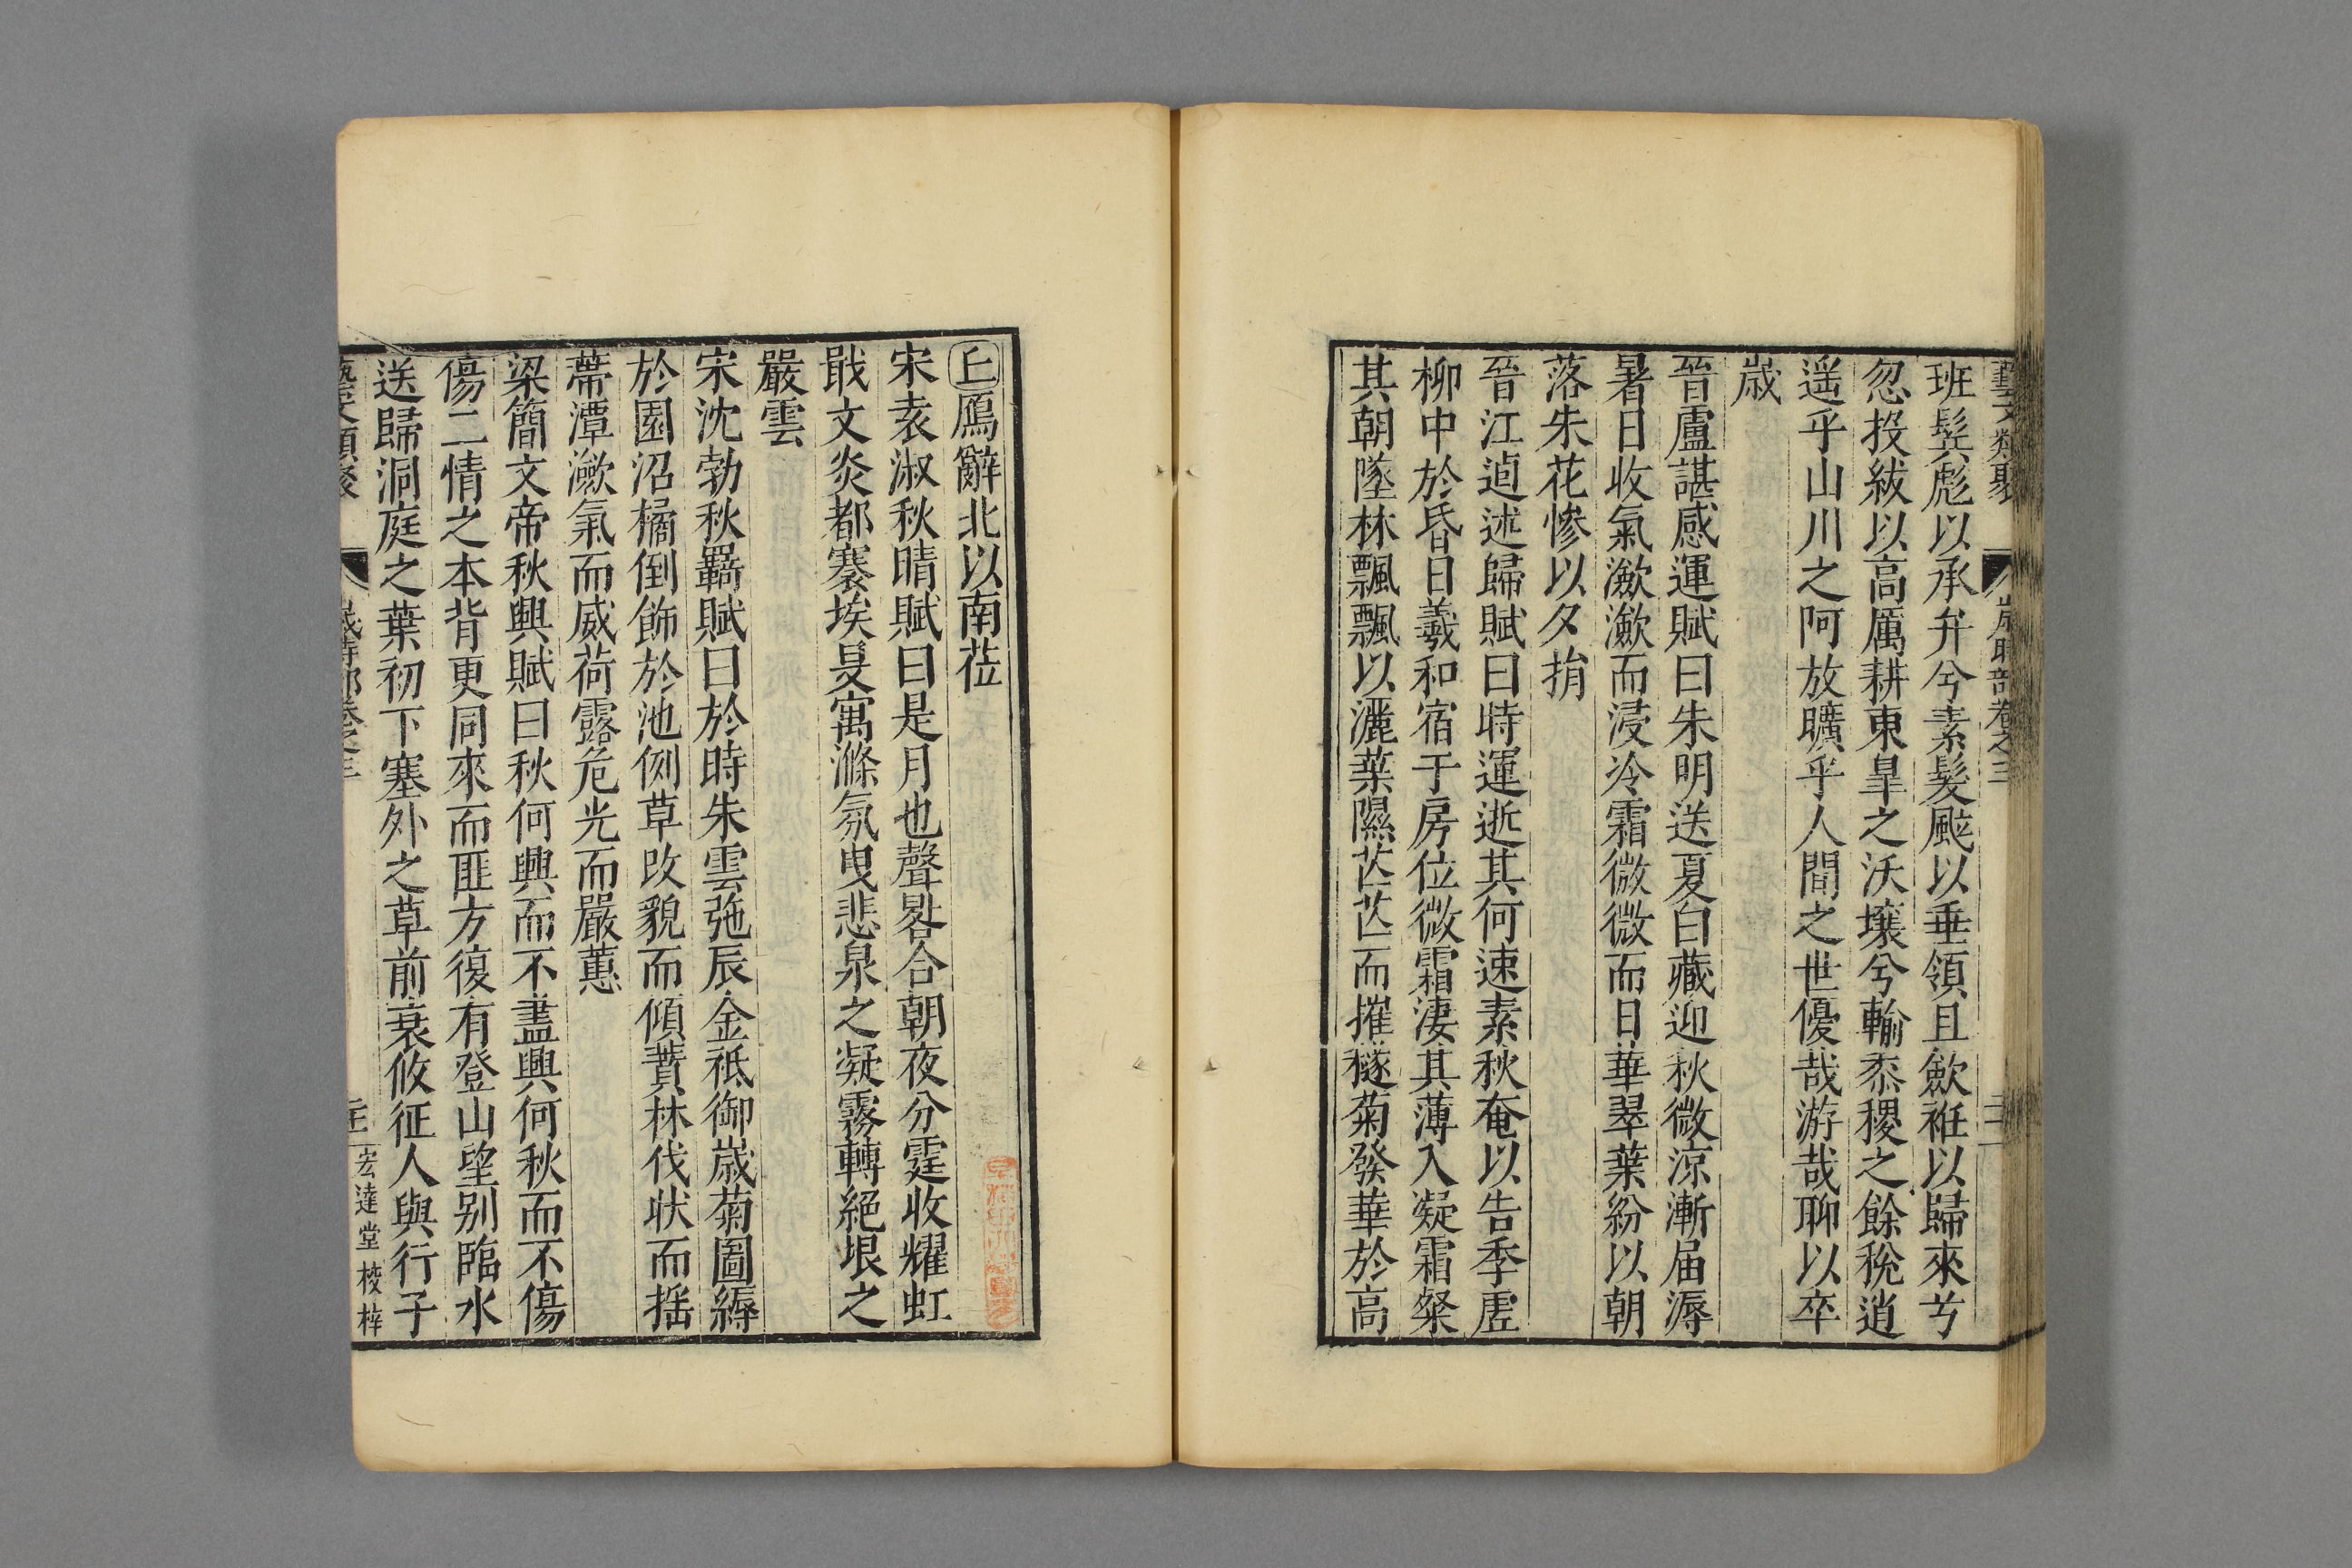 藝文類聚 歲時部卷之三
班鬂彪以承弁兮素髮颭以垂領且歛袵以歸來兮
忽投紱以高厲耕東皐之沃壤兮輸黍稷之餘稅逍
遥乎山川之阿放曠乎人間之世優哉游哉聊以卒
歲
晉盧諶感運賦曰朱明送夏白藏迎秋微涼漸届溽
暑日收氣潄潄而浸冷霜微微而日華翠葉紛以朝
落朱花慘以夕捐
晉江逌述歸賦曰時運逝其何速素秋奄以告季虗
柳中於昏日羲和宿于房位微霜淒其薄入凝霜粲
其朝墜林飄飄以灑葉隰芒芒而摧穟菊發華於高
丘鴈辭北以南莅
宋袁淑秋晴賦曰是月也聲畧合朝夜分霆收耀虹
戢文炎都褰埃旻寓滌氛曳悲泉之凝霧轉絕垠之
嚴雲
宋沈勃秋羇賦曰於時朱雲弛辰金祗御歲菊圖縟
於園沼橘倒飾於池側草改貌而傾蕡林伐狀而摇
蔕潭潄氣而威荷露危光而嚴蕙
梁簡文帝秋興賦曰秋何興而不盡興何秋而不傷
傷二情之本背更同來而匪方復有登山望别臨水
送歸洞庭之葉初下塞外之草前衰攸征人與行子
藝文類聚 歲時部卷之三 宏達堂校梓